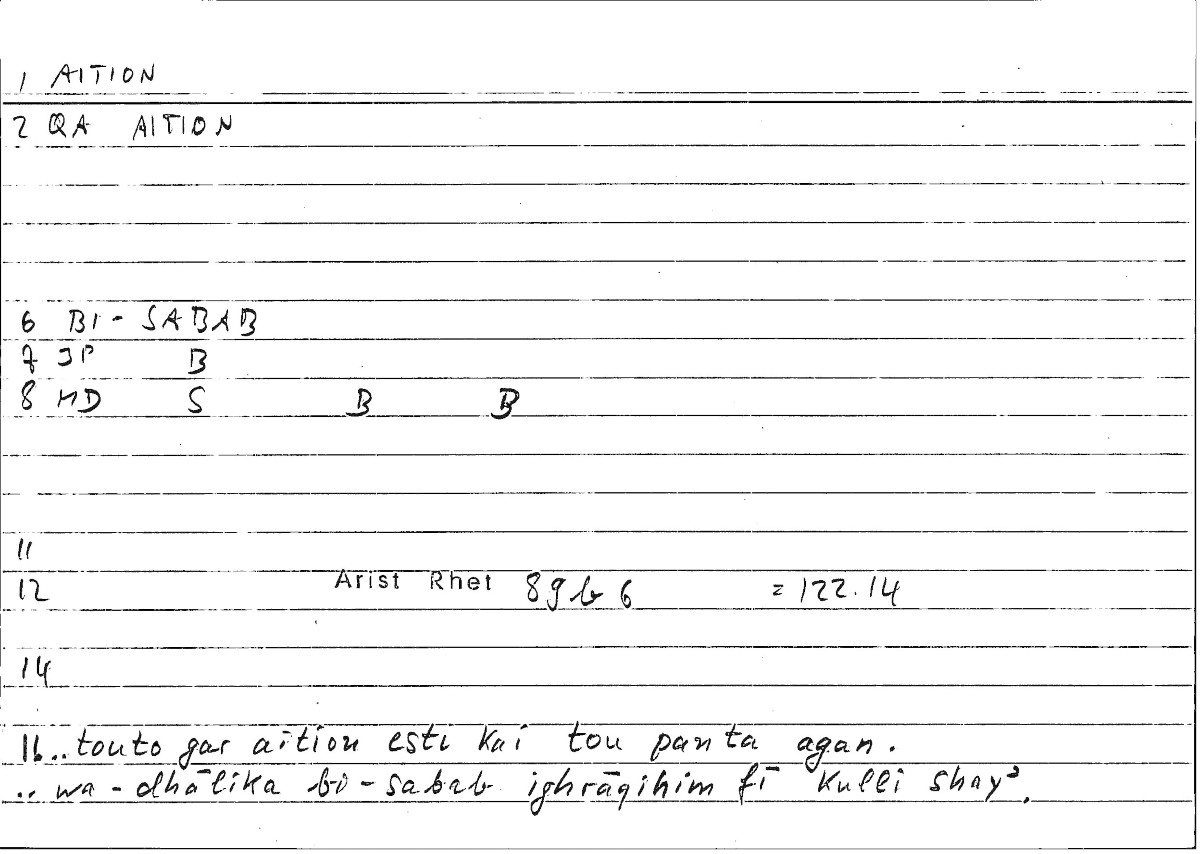 1 AITION
2 QA AITION
6 BI-SABAB
7 JP B
8 MD S B B
11
12 Arist Rhet 89b6 =122.14
14
16..touto gar aition esti kai tou panta agan.
.. wa-dhālika bi-sabab ighrāqihim fī kulli shayʾ.